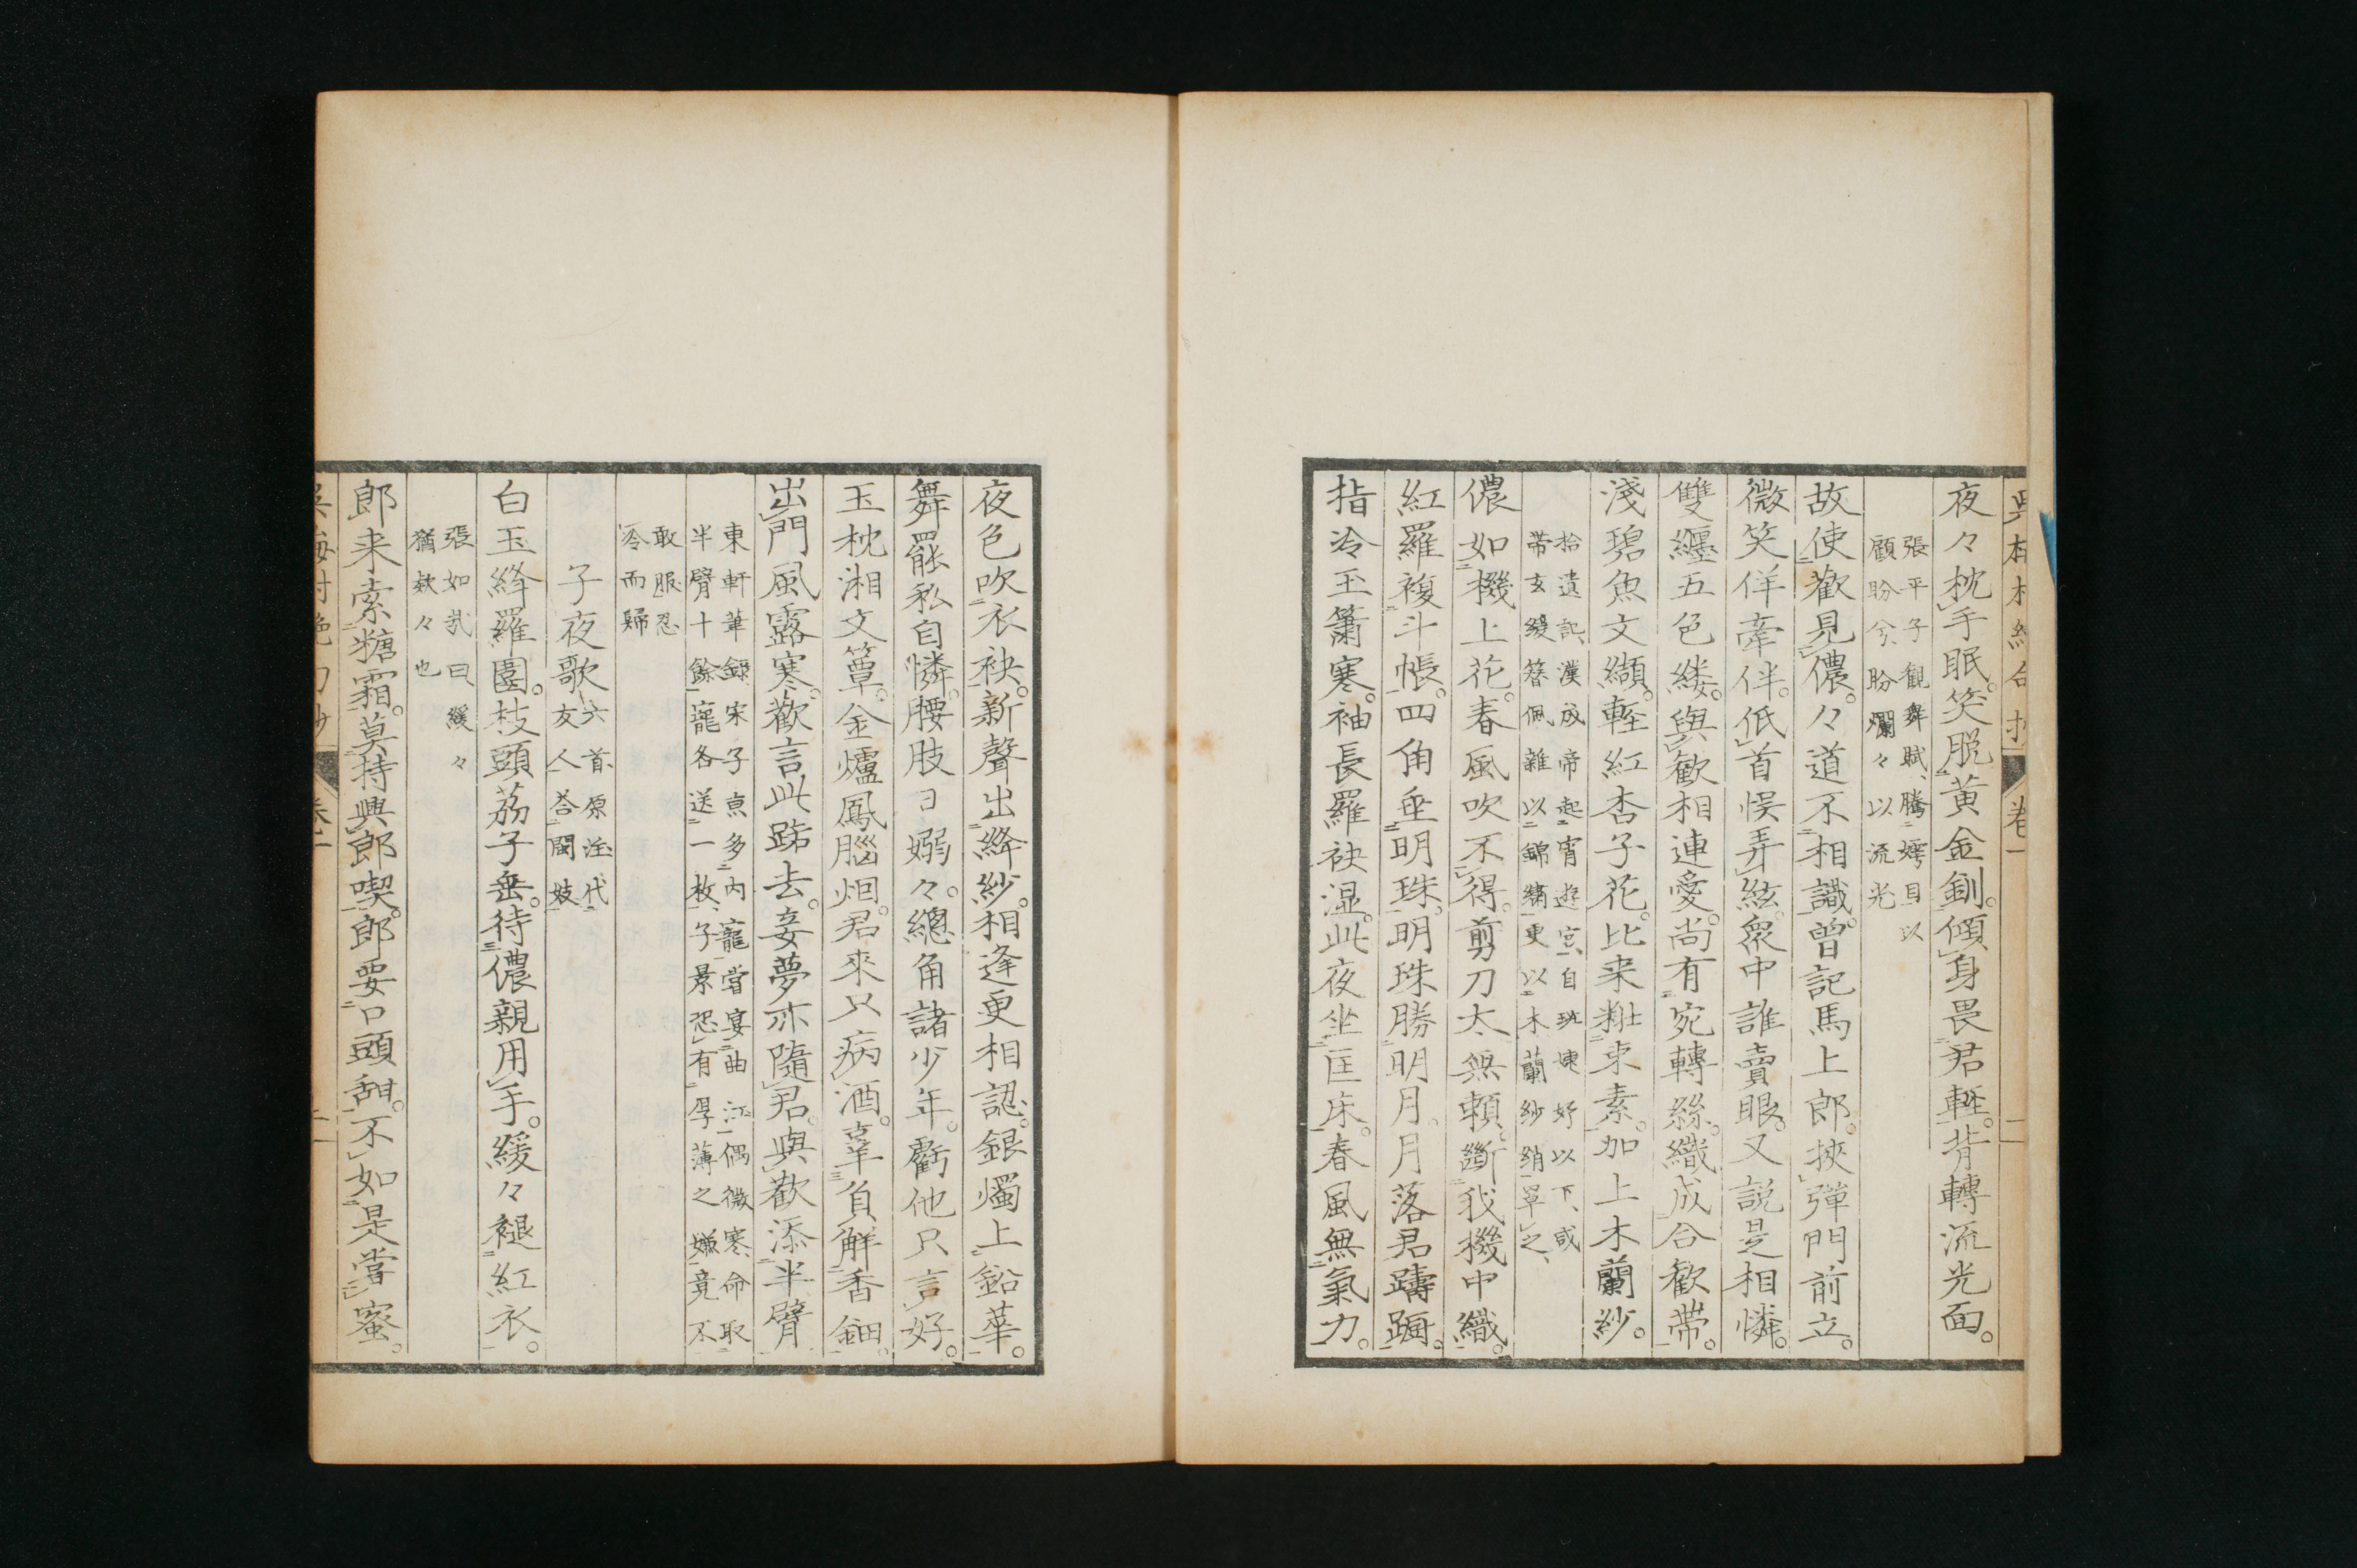 夜々枕手眠。笑脱黄金釧。傾身畏君軽。背轉流光面。
張平子觀舞賦、騰嫮目以
顧盼兮、盼爛々以流光
故使歡見儂。々道不相識。曽記馬上郎。挾彈門前立。
微笑佯牽伴。低首悞弄絃。衆中誰賣眼。又説是相憐。
雙纏五色縷。與歡相連愛。尚有宛轉絲。織成合歡帶。
淺碧魚文纈。輕紅杏子花。比来粧束素。加上木蘭紗。
拾遺記、漢成帝起宵遊宮、自班婕妤以下、咸
帶玄綬簪佩雖以錦繡更以木蘭紗綃罩之、
儂如機上花。春風吹不得。剪刀太無賴。斷我機中織。
紅羅複斗帳。四角垂明珠。明珠勝明月。月落君躊躕。
指冷玉簫寒。袖長羅袂湿。此夜坐匡床。春風無氣力。
夜色吹衣袂。新聲出絳紗。相逢更相認。銀燭上鉛華。
舞罷私自憐。腰肢日嫋々。總角諸少年。虧他只言好。
玉枕湘文簟。金爐鳳腦烟。君來只病酒。辜負解香鈿。
出門風露寒。歡言此踏去。妾夢亦隨君。與歡添半臂
東軒筆録宋子京多内寵嘗宴曲江偶微寒、命取
半臂十餘寵各送一枚、子景恐有厚薄之嫌竟不
敢服忍
冷而歸
子夜歌 六首、原注、代
友人荅閩妓
白玉絳羅圍。枝頭荔子垂。待儂親用手。緩々褪紅衣。
張如哉曰緩々
猶欸々也
郎来索糖霜。莫持與郎喫。郎要口頭甜。不如是嘗蜜。
卷一